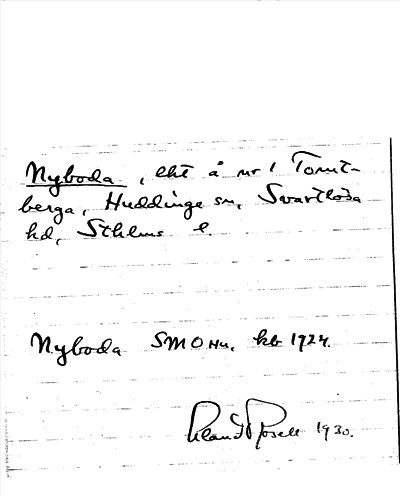 Nyboda, lht å nr 1 Tomt-
berga, Huddinge sn, Svartlösa
hd, Sthlms l.
Nyboda SMOHu, kb 1924.
1930.